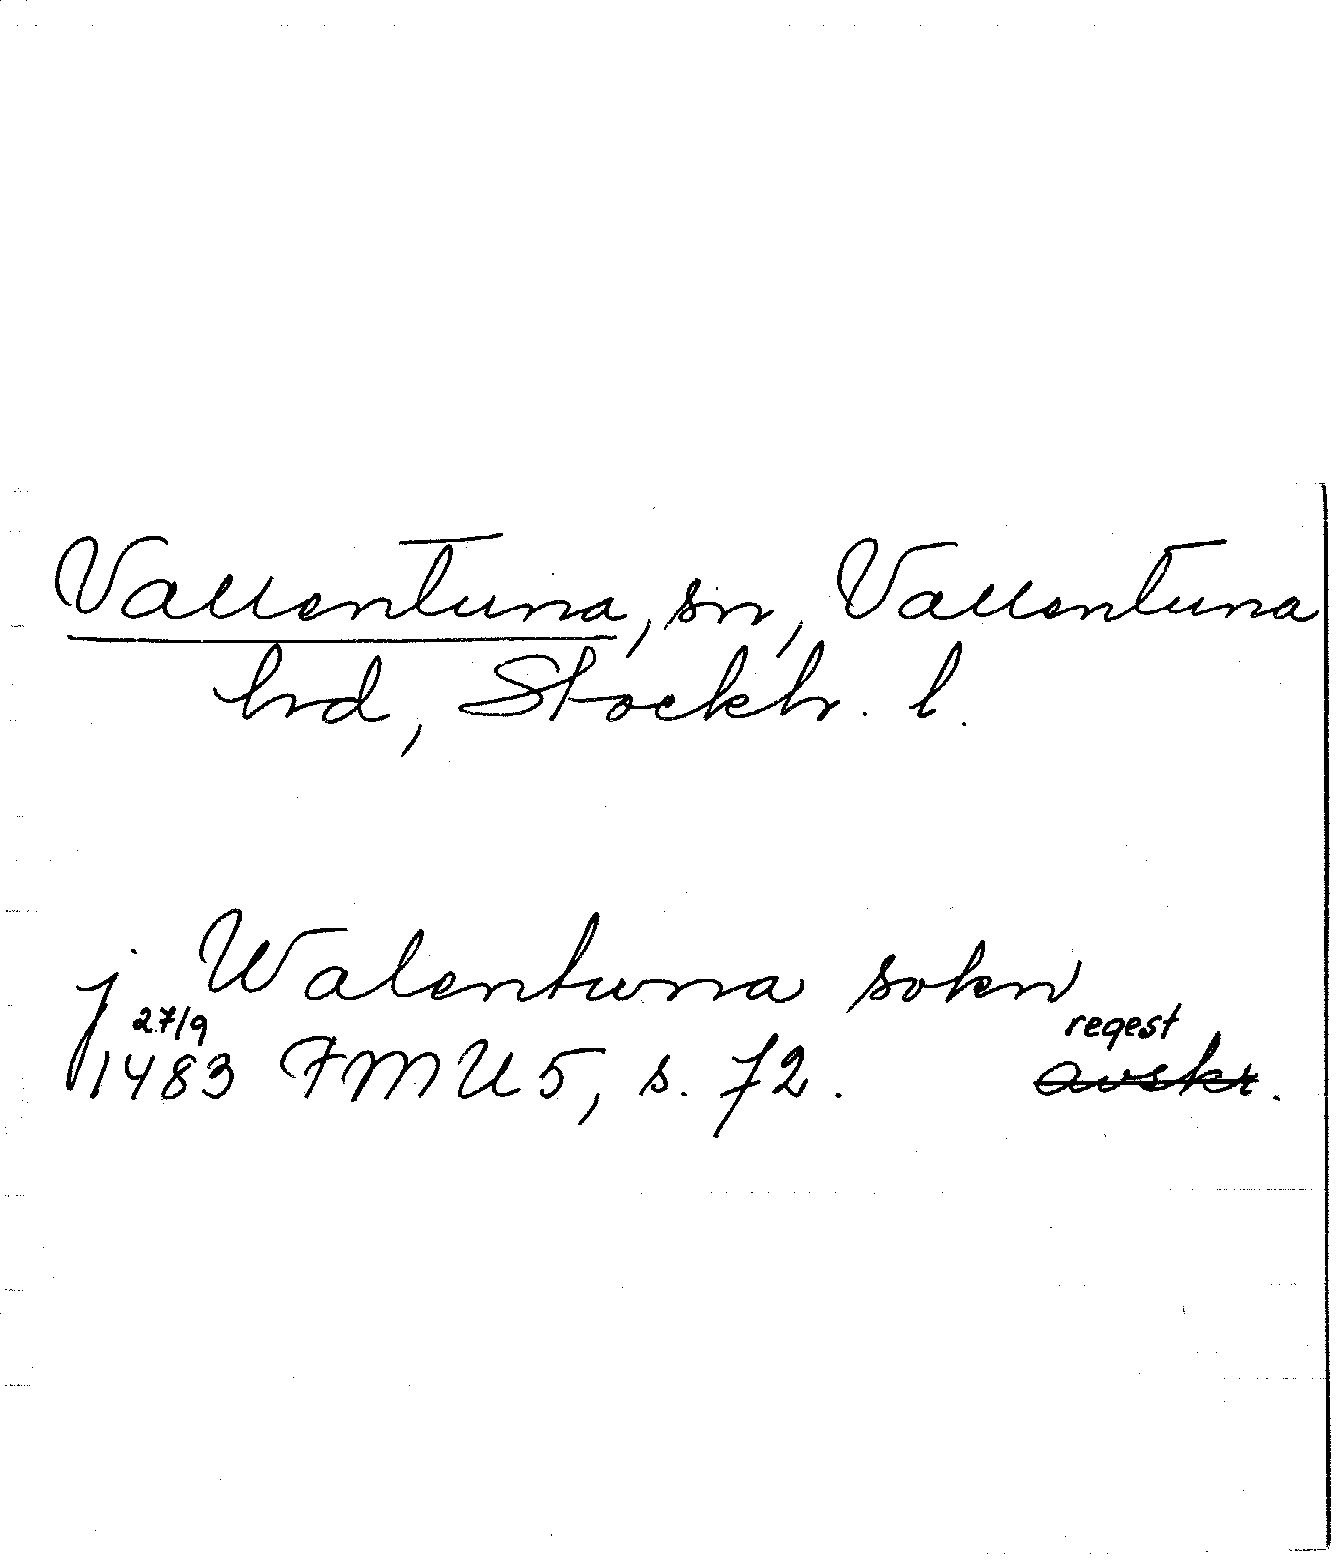 Vallentuna, sn, Vallentuna
hrd, Stockh. l.
j Walentuna sokn
27/9 regest
1483 FMU 5, s. 72. avskr.